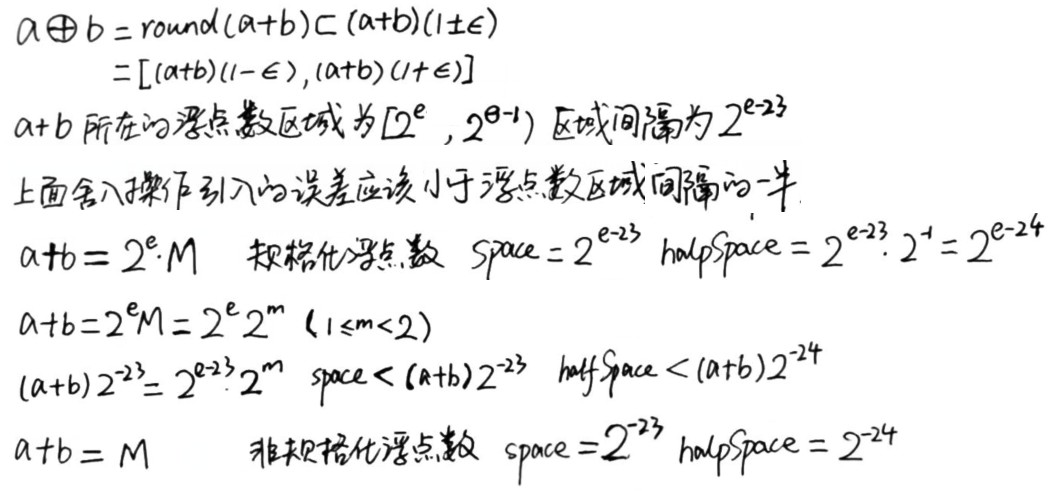 a⊕b = round(a+b) ⊂ (a+b)(1±ϵ)
= [(a+b)(1-ϵ), (a+b)(1+ϵ)]
a+b 所在的浮点数区域为[2^e , 2^{e-1}) 区域间隔为 2^{e-23}
上面舍入操作引入的误差应该小于浮点数区域间隔的一半.
a+b = 2^e·M 规格化浮点数 space = 2^{e-23} halpSpace = 2^{e-23}·2^{-1} = 2^{e-24}
a+b = 2^e M = 2^e 2^m (1≤m<2)
(a+b) 2^{-23} = 2^{e-23}·2^m space < (a+b) 2^{-23} halfSpace < (a+b) 2^{-24}
a+b = M 非规格化浮点数 space = 2^{-23} halpSpace = 2^{-24}